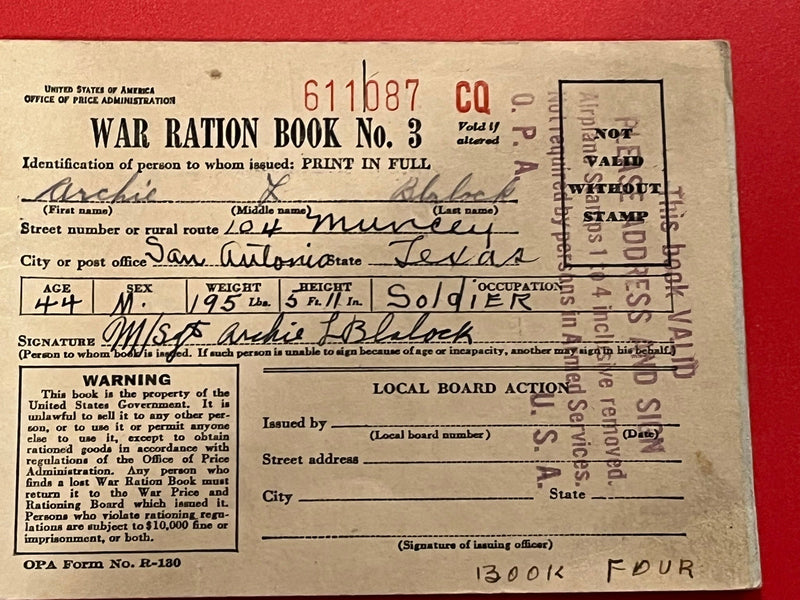 UNITED STATES OF AMERICA
OFFICE OF PRICE ADMINISTRATION
611087 CQ
Void if altered
WAR RATION BOOK No. 3
Identification of person to whom issued: PRINT IN FULL
Archie L Blalock
(First name) (Middle name) (Last name)
Street number or rural route 104 Muncey
City or post office San Antonio State Texas
AGE SEX WEIGHT HEIGHT OCCUPATION
44 M. 195 Lbs. 5 Ft. 11 In. SoldiER
SIGNATURE M/Sgt Archie L Blalock
(Person to whom book is issued. If such person is unable to sign because of age or incapacity, another may sign in his behalf.)
WARNING
This book is the property of the
United States Government. It is
unlawful to sell it to any other per-
son, or to use it or permit anyone
else to use it, except to obtain
rationed goods in accordance with
regulations of the Office of Price
Administration. Any person who
finds a lost War Ration Book must
return it to the War Price and
Rationing Board which issued it.
Persons who violate rationing regu-
lations are subject to $10,000 fine or
imprisonment, or both.
OPA Form No. R-130
LOCAL BOARD ACTION
Issued by
(Local board number) (Date)
Street address
City State
(Signature of issuing officer)
BOOK FOUR
NOT
VALID
WITHOUT
STAMP
This book VALID
PLEASE ADDRESS AND SIGN
Airplane Stamps 1 to 4 inclusive removed.
Not required by persons in Armed Services.
O. P. A. U. S. A.